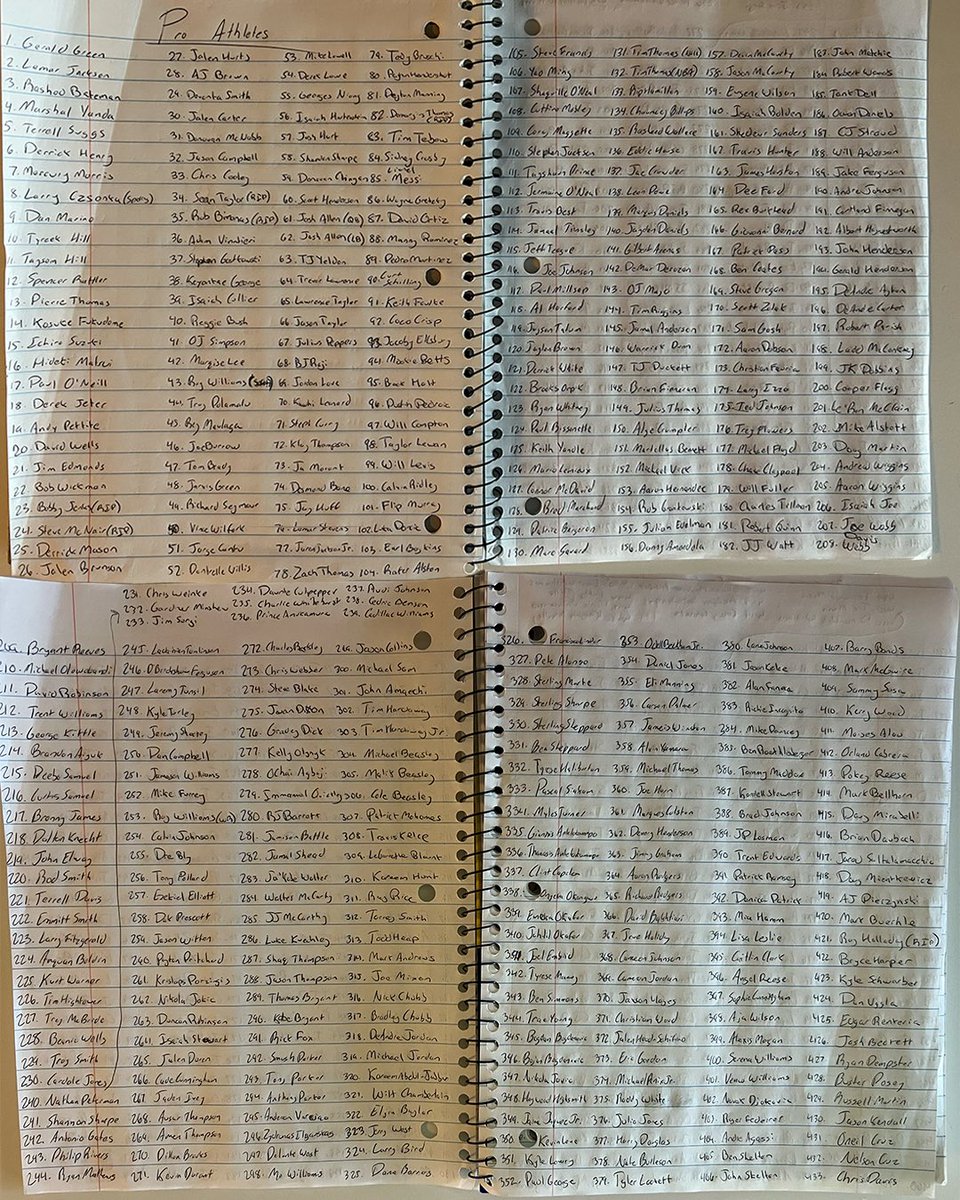 Pro Athletes
1. Gerald Green
2. Lamar Jackson
3. Rashod Bateman
4. Marshal Yanda
5. Terrell Suggs
6. Derrick Henry
7. Mercury Morris
8. Larry Csonka
9. Dan Marino
10. Tyreek Hill
11. Taysom Hill
12. Spencer Rattler
13. Pierre Thomas
14. Kosuke Fukudome
15. Ichiro Suzuki
16. Hideki Matsui
17. Paul O'Neill
18. Derek Jeter
19. Andy Pettite
20. David Wells
21. Jim Edmonds
22. Bob Wickman
23. Bobby Jenks (RIP)
24. Steve McNair (RIP)
25. Derrick Mason
26. Jalen Brunson
27. Jalen Hurts
28. AJ Brown
29. Devonta Smith
30. Jalen Carter
31. Donovan McNabb
32. Jason Campbell
33. Chris Cooley
34. Sean Taylor (RIP)
35. Rob Bironas (RIP)
36. Adam Vinatieri
37. Stephen Gostkowski
38. Keyontae George
39. Isaiah Collier
40. Reggie Bush
41. OJ Simpson
42. Margise Lee
43. Roy Williams
44. Troy Polamalu
45. Rey Maualuga
46. Joe Burrow
47. Tom Brady
48. Jarvis Green
49. Richard Seymour
50. Vince Wilfork
51. Jorge Cantu
52. Dontrelle Willis
53. Mike Lowell
54. Derek Lowe
55. Georges Niang
56. Isaiah Hartenstein
57. Josh Hart
58. Shaedon Sharpe
59. Donovan Clingan
60. Scoot Henderson
61. Josh Allen (QB)
62. Josh Allen (LB)
63. TJ Yeldon
64. Trevor Lawrence
65. Lawrence Taylor
66. Jason Taylor
67. Julius Peppers
68. BJ Raji
69. Jordan Love
70. Kawhi Leonard
71. Steph Curry
72. Klay Thompson
73. Ja Morant
74. Desmond Bane
75. Jay Huff
76. Lamar Stevens
77. Jaren Jackson Jr.
78. Zach Thomas
79. Tedy Bruschi
80. Ryan Hendershot
81. Peyton Manning
82. Demaryius Thomas (RIP)
83. Tim Tebow
84. Sidney Crosby
85. Lionel Messi
86. Wayne Gretzky
87. David Ortiz
88. Manny Ramirez
89. Pedro Martinez
90. Curt Schilling
91. Keith Foulke
92. Coco Crisp
93. Jacoby Ellsbury
94. Mookie Betts
95. Brock Holt
96. Dustin Pedroia
97. Will Compton
98. Taylor Lewan
99. Will Levis
100. Calvin Ridley
101. Flip Murray
102. Luka Doncic
103. Earl Boykins
104. Rafer Alston
105. Steve Francis
106. Yao Ming
107. Shaquille O'Neal
108. Cuttino Mobley
109. Corey Maggette
110. Stephen Jackson
111. Tayshaun Prince
112. Jermaine O'Neal
113. Travis Best
114. Jamaal Tinsley
115. Jeff Teague
116. Joe Johnson
117. Paul Millsap
118. Al Horford
119. Jayson Tatum
120. Jaylen Brown
121. Derrick White
122. Brooks Orpik
123. Ryan Whitney
124. Paul Bissonnette
125. Keith Yandle
126. Mario Lemieux
127. Connor McDavid
128. Brad Marchand
129. Patrice Bergeron
130. Marc Savard
131. Tim Thomas
132. Tim Thomas (NBA)
133. Rip Hamilton
134. Chauncey Billups
135. Rasheed Wallace
136. Eddie House
137. Jae Crowder
138. Leon Powe
139. Marquis Daniels
140. Jayden Daniels
141. Gilbert Arenas
142. DeMar Derozan
143. OJ Mayo
144. Tim Riggins
145. Jamal Anderson
146. Warrick Dunn
147. TJ Duckett
148. Brian Finneran
149. Julius Thomas
150. Alge Crumpler
151. Martellus Bennett
152. Michael Vick
153. Aaron Hernandez
154. Rob Gronkowski
155. Julian Edelman
156. Danny Amendola
157. Devin McCourty
158. Jason McCourty
159. Eugene Wilson
160. Isaiah Bolden
161. Shedeur Sanders
162. Travis Hunter
163. James Harrison
164. Dee Ford
165. Rex Burkhead
166. Giovani Bernard
167. Patrick Pass
168. Ben Coates
169. Steve Grogan
170. Scott Zolak
171. Sam Gash
172. Aaron Dobson
173. Christian Fauria
174. Larry Izzo
175. Ted Johnson
176. Trey Flowers
177. Michael Floyd
178. Chase Claypool
179. Will Fuller
180. Charles Tillman
181. Robert Quinn
182. JJ Watt
183. John Metchie
184. Robert Woods
185. Tank Dell
186. Owen Daniels
187. CJ Stroud
188. Will Anderson
189. Jake Ferguson
190. Andre Johnson
191. Cortland Finnegan
192. Albert Haynesworth
193. John Henderson
194. Gerald Henderson
195. DeAndre Ayton
196. DeAndre Carter
197. Robert Parish
198. Ladd McConkey
199. JK Dobbins
200. Cooper Flagg
201. Le'Ron McClain
202. Mike Alstott
203. Doug Martin
204. Andrew Wiggins
205. Aaron Wiggins
206. Isaiah Joe
207. Joe Webb
208. Webb
231. Chris Weinke
232. Gardner Minshew
233. Jim Sorgi
234. Daunte Culpepper
235. Charlie Whitehurst
236. Prince Amukamara
237. Rudi Johnson
238. Cedric Benson
239. Cadillac Williams
209. Bryant Reeves
210. Michael Olowokandi
211. David Robinson
212. Trent Williams
213. George Kittle
214. Brandon Aiyuk
215. Deebo Samuel
216. Curtis Samuel
217. Bronny James
218. Dalton Knecht
219. John Elway
220. Rod Smith
221. Terrell Davis
222. Emmitt Smith
223. Larry Fitzgerald
224. Anquan Boldin
225. Kurt Warner
226. Tim Hightower
227. Trey McBride
228. Beanie Wells
229. Troy Smith
230. Cardale Jones
240. Nathan Peterman
241. Shannon Sharpe
242. Antonio Gates
243. Philip Rivers
244. Ryan Mathews
245. LaDainian Tomlinson
246. D'Brickashaw Ferguson
247. Laremy Tunsil
248. Kyle Turley
249. Jeremy Shockey
250. Dan Campbell
251. Jameson Williams
252. Mike Furrey
253. Roy Williams (WR)
254. Calvin Johnson
255. Dre Bly
256. Tony Pollard
257. Ezekiel Elliott
258. Dak Prescott
259. Jason Witten
260. Payton Pritchard
261. Kristaps Porzingis
262. Nikola Jokic
263. Duncan Robinson
264. Isaiah Stewart
265. Jalen Duren
266. Cade Cunningham
267. Jaden Ivey
268. Ausar Thompson
269. Amen Thompson
270. Dillon Brooks
271. Kevin Durant
272. Charles Barkley
273. Chris Webber
274. Steve Blake
275. Juan Dixon
276. Gradey Dick
277. Kelly Olynyk
278. Ochai Agbaji
279. Immanuel Quickley
280. RJ Barrett
281. Jamison Battle
282. Jamal Shead
283. Ja'Kobe Walter
284. Walter McCarty
285. JJ McCarthy
286. Luke Kuechly
287. Shaq Thompson
288. Jason Thompson
289. Thomas Bryant
290. Kobe Bryant
291. Rick Fox
292. Smush Parker
293. Tony Parker
294. Anthony Parker
295. Anderson Varejao
296. Zydrunas Ilgauskas
297. Delonte West
298. Mo Williams
299. Jason Collins
300. Michael Sam
301. John Amaechi
302. Tim Hardaway
303. Tim Hardaway Jr.
304. Michael Beasley
305. Malik Beasley
306. Cole Beasley
307. Patrick Mahomes
308. Travis Kelce
309. LeGarrette Blount
310. Kareem Hunt
311. Ray Rice
312. Torrey Smith
313. Todd Heap
314. Mark Andrews
315. Joe Mixon
316. Nick Chubb
317. Bradley Chubb
318. DeAndre Jordan
319. Michael Jordan
320. Kareem Abdul-Jabbar
321. Wilt Chamberlain
322. Elgin Baylor
323. Jerry West
324. Larry Bird
325. Dana Barros
326. Francisco Lindor
327. Pete Alonso
328. Starling Marte
329. Sterling Sharpe
330. Sterling Sheppard
331. Ben Sheppard
332. Tyrese Haliburton
333. Pascal Siakam
334. Myles Turner
335. Giannis Antetokounmpo
336. Thanasis Antetokounmpo
337. Clint Capela
338. Onyeka Okongwu
339. Emeka Okafor
340. Jahlil Okafor
341. Joel Embiid
342. Tyrese Maxey
343. Ben Simmons
344. Trae Young
345. Bogdan Bogdanovic
346. Bojan Bogdanovic
347. Nikola Jovic
348. Haywood Highsmith
349. Jaime Jaquez Jr.
350. Kevin Love
351. Kyle Lowry
352. Paul George
353. Odell Beckham Jr.
354. Daniel Jones
355. Eli Manning
356. Carson Palmer
357. Jameis Winston
358. Alvin Kamara
359. Michael Thomas
360. Joe Horn
361. Marques Colston
362. Devery Henderson
363. Jimmy Graham
364. Aaron Rodgers
365. Richard Rodgers
366. David Bakhtiari
367. Jrue Holiday
368. Cameron Johnson
369. Cameron Jordan
370. Jaxson Hayes
371. Christian Wood
372. Jalen Hood-Schifino
373. Eric Gordon
374. Michael Porter Jr.
375. Roddy White
376. Julio Jones
377. Harry Douglas
378. Nate Burleson
379. Tyler Lockett
380. Lane Johnson
381. Jason Kelce
382. Alan Faneca
383. Richie Incognito
384. Mike Pouncey
385. Ben Roethlisberger
386. Tommy Maddox
387. Kordell Stewart
388. Brad Johnson
389. JP Losman
390. Trent Edwards
391. Patrick Ramsey
392. Danica Patrick
393. Mia Hamm
394. Lisa Leslie
395. Caitlin Clark
396. Angel Reese
397. Sophie Cunningham
398. A'ja Wilson
399. Alexis Morgan
400. Serena Williams
401. Venus Williams
402. Novak Djokovic
403. Roger Federer
404. Andre Agassi
405. Ben Shelton
406. John Skelton
407. Barry Bonds
408. Mark McGwire
409. Sammy Sosa
410. Kerry Wood
411. Moises Alou
412. Orlando Cabrera
413. Pokey Reese
414. Mark Bellhorn
415. Doug Mirabelli
416. Brian Daubach
417. Jarrod Saltalamacchia
418. Doug Mientkewicz
419. AJ Pierzynski
420. Mark Buehrle
421. Roy Halladay (RIP)
422. Bryce Harper
423. Kyle Schwarber
424. Dan Uggla
425. Edgar Renteria
426. Josh Beckett
427. Ryan Dempster
428. Buster Posey
429. Russell Martin
430. Jason Kendall
431. Oneil Cruz
432. Nelson Cruz
433. Chris Davis